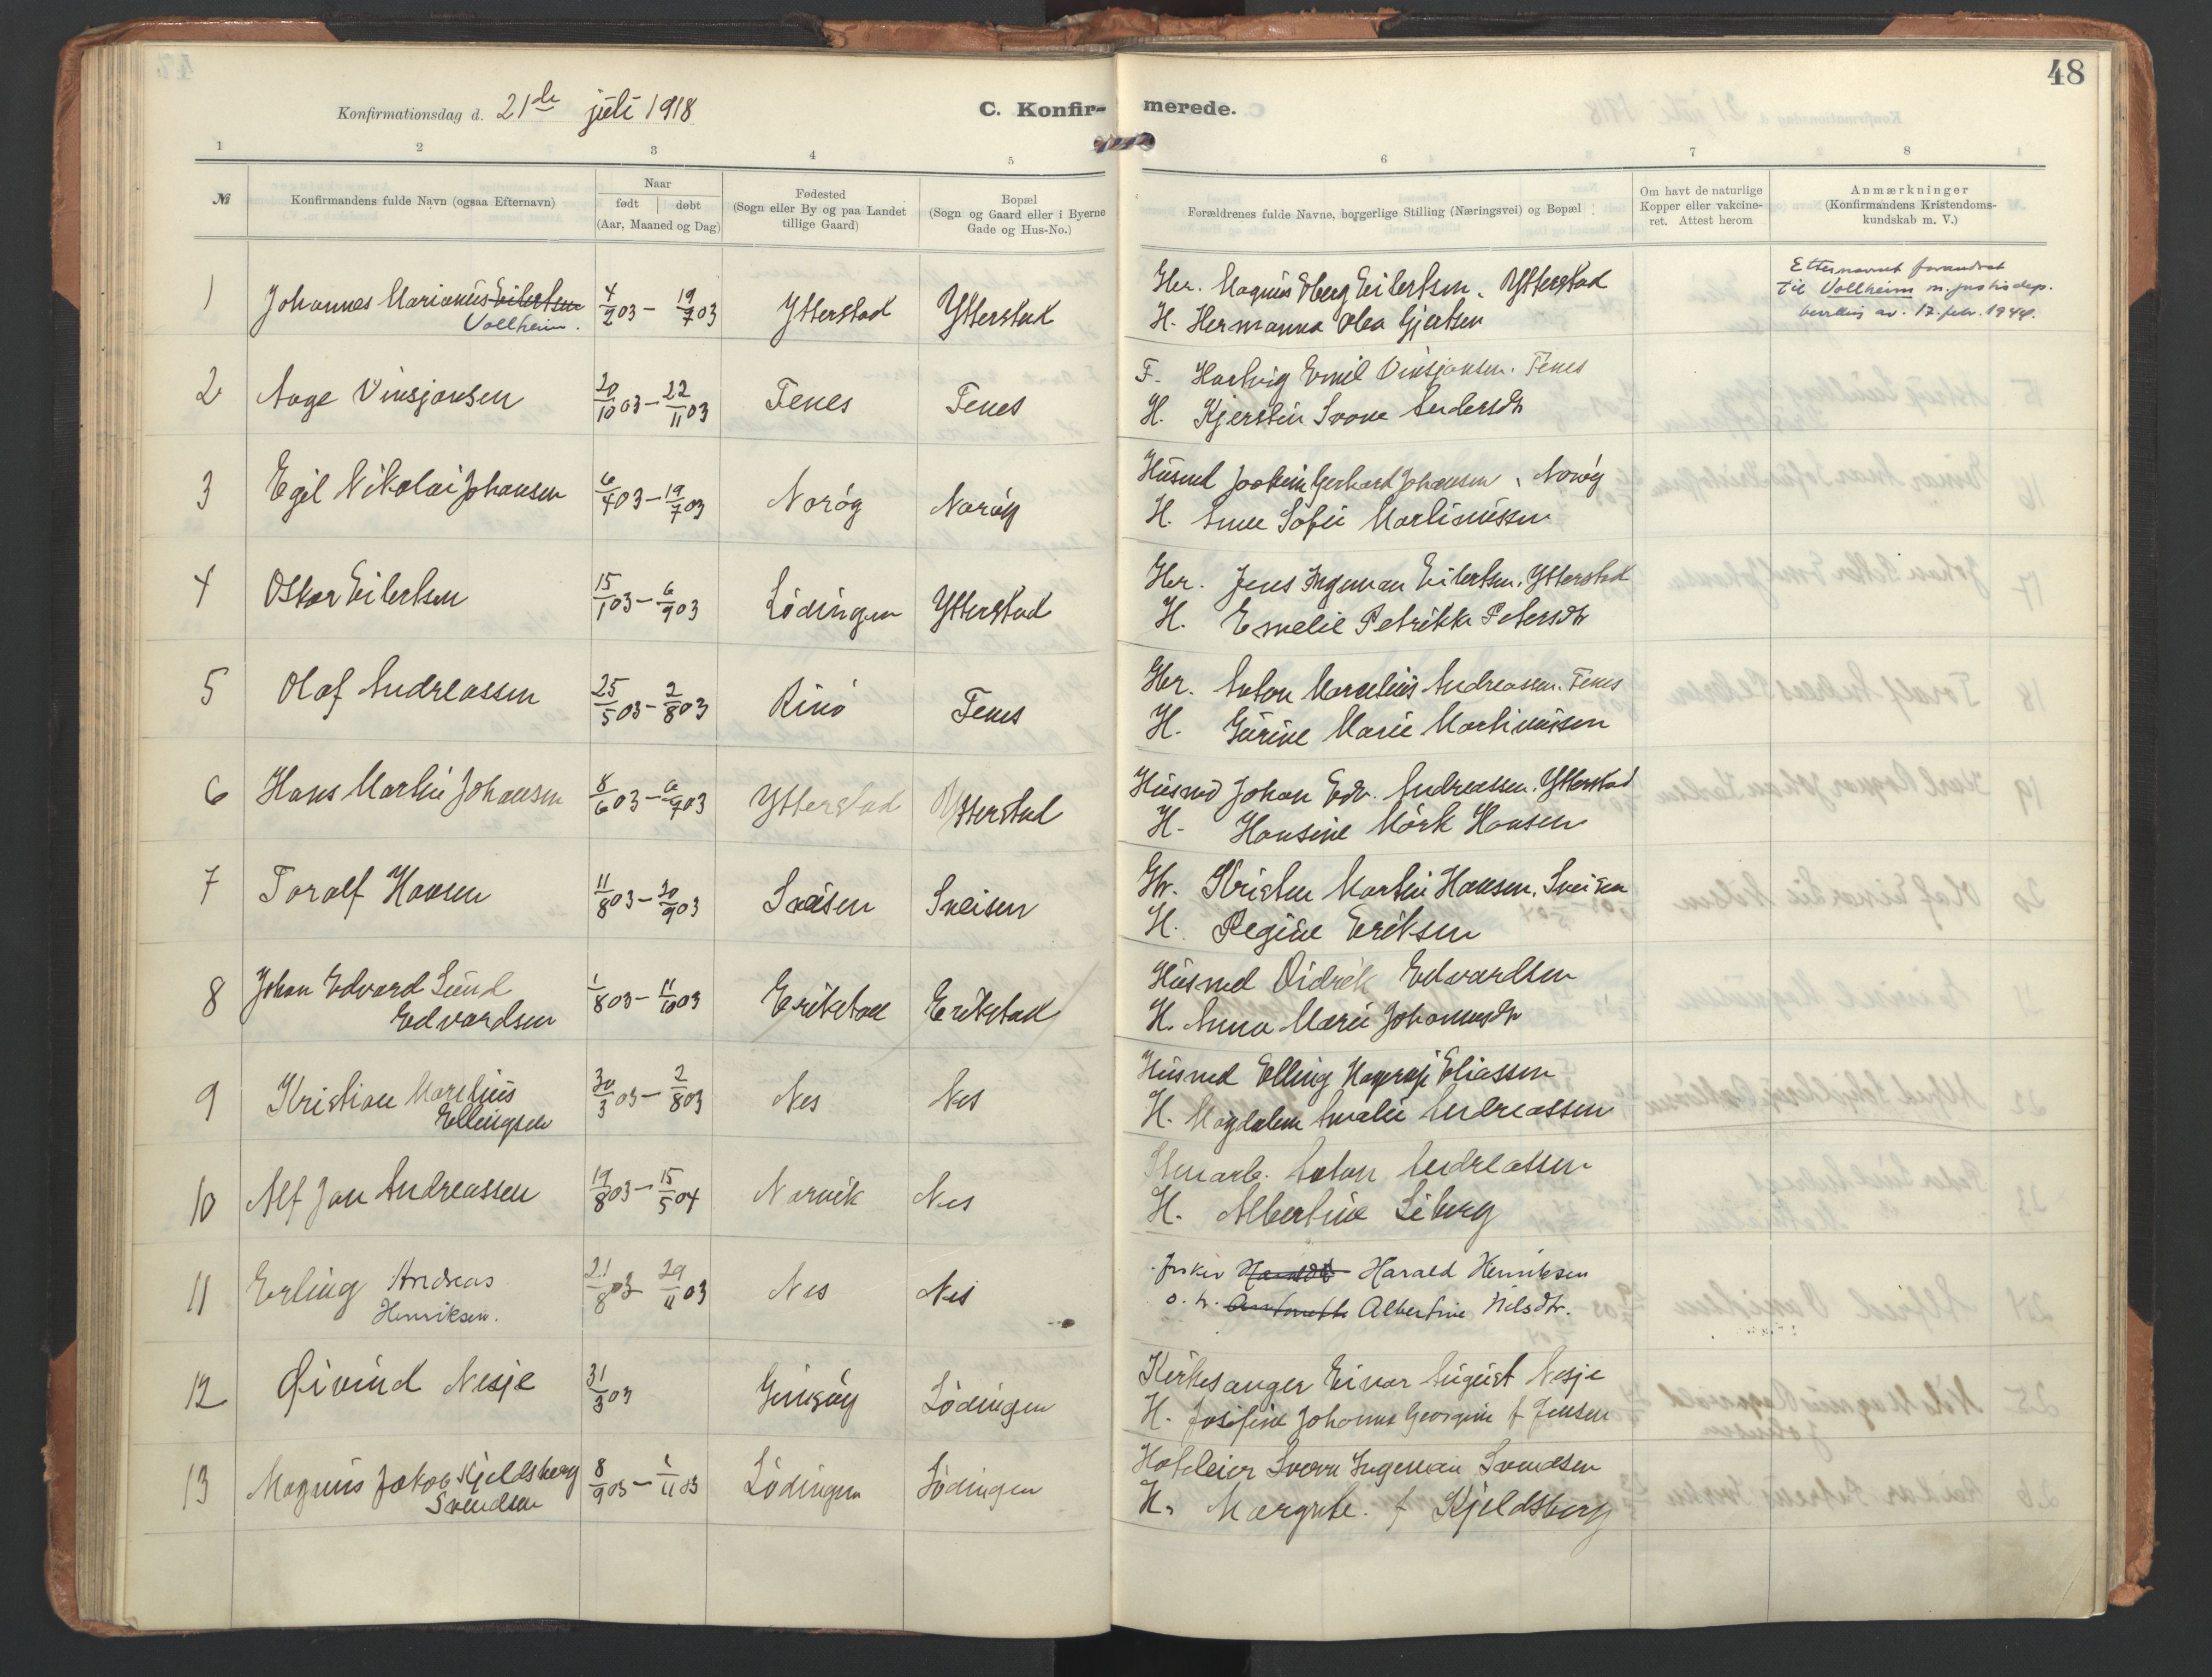 48
Konfirmationsdag d. 21de juli 1918
C. Konfir- merede.
1 2 3 4 5 6 7 8
№
Konfirmandens fulde Navn (ogsaa Efternavn)
Naar
født | døbt
(Aar, Maaned og Dag)
Fødested
(Sogn eller By og paa Landet
tillige Gaard)
Bopæl
(Sogn og Gaard eller i Byerne
Gade og Hus-No.)
Forældrenes fulde Navne, borgerlige Stilling (Næringsvei) og Bopæl
Om havt de naturlige
Kopper eller vakcine-
ret. Attest herom
Anmærkninger
(Konfirmandens Kristendoms-
kundskab m. V.)
1 Johannes Marianus Eilertsen 4/2 03 — 19/7 03 Ytterstad Ytterstad Gbr. Magnus Eilertsen. Ytterstad
Vollheim. H. Hermanna Olea Gjertsen
Etternavnet forandret
til Vollheim m. justisdep.
bevilling av. 17. febr. 1944.
2 Aage Vinsjansen 20/10 03 — 22/11 03 Fenes Fenes F. Hartvig Emil Vinsjansen. Fenes
H. Kjerstin Andersdtr
3 Egil Nikolai Johansen 6/4 03 — 19/7 03 Norøg Norøg Husmd Joakim Gerhard Johansen, Norøg
H. Anne Sofie Martinussen
4 Oskar Eilertsen 15/1 03 — 6/9 03 Lødingen Ytterstad Gbr. Jens Ingeman Eilertsen. Ytterstad
H. Emelie Petrikke Petersdtr
5 Olaf Andreassen 25/5 03 — 2/8 03 Rinø Fenes Gbr. Anton Marselius Andreassen. Fenes
H. Gurine Marie Martinussen
6 Hans Martin Johansen 8/6 03 — 6/9 03 Ytterstad Ytterstad Husmd Johan Edv. Andreassen. Ytterstad
H. Hansine Mørk Hansen
7 Toralf Hansen 11/8 03 — 20/9 03 Sneisen Sneisen Gbr. Kristen Martin Hansen, Sneisen
H. Regine Eriksen
8 Johan Edvard Lund 1/8 03 — 11/10 03 Erikstad Erikstad Husmd Didrik Edvardsen
Edvardsen H. Anna Marie Johannesdtr
9 Kristian Marelius 30/3 03 — 2/8 03 Nes Nes Husmd Elling Eliassen
Ellingsen H. Magdalene Amalie Andreassen
10 Alf Jan Andreassen 19/8 03 — 15/5 04 Narvik Nes Stenarb. Anton Andreassen
H. Albertine Liberg
11 Erling Andreas 21/8 03 29/11 03 Nes Nes fisker Harald Henriksen
Henriksen. o. h. Albertine Nilsdtr.
12 Øivind Nesje 31/3 03 Gimsøy Lødingen Kirkesanger Einar August Nesje
H. Josefine Johanne Georgine f Jensen
13 Magnus Jakob Kjeldsberg 8/9 03 — 1/11 03 Lødingen Lødingen Hoteleier Ingeman Svendsen
Svendsen H. Margrete. f Kjeldsberg